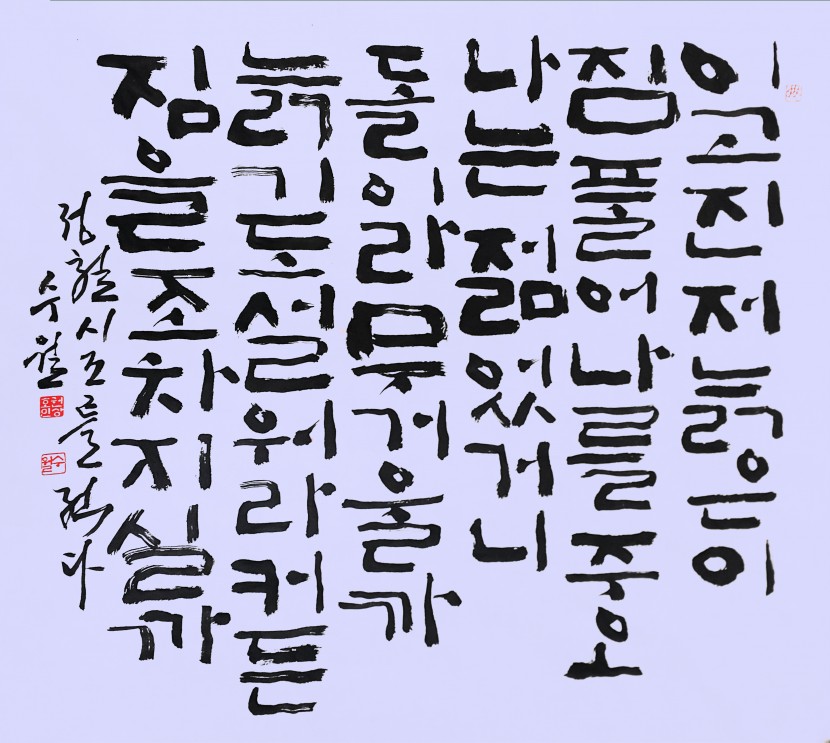 이고진저늙은이
짐풀어나를주오
나는젊었거니
돌이라무거울까
늙기도설워라커든
짐을조차지실까
정철시조를적다
수월
수월